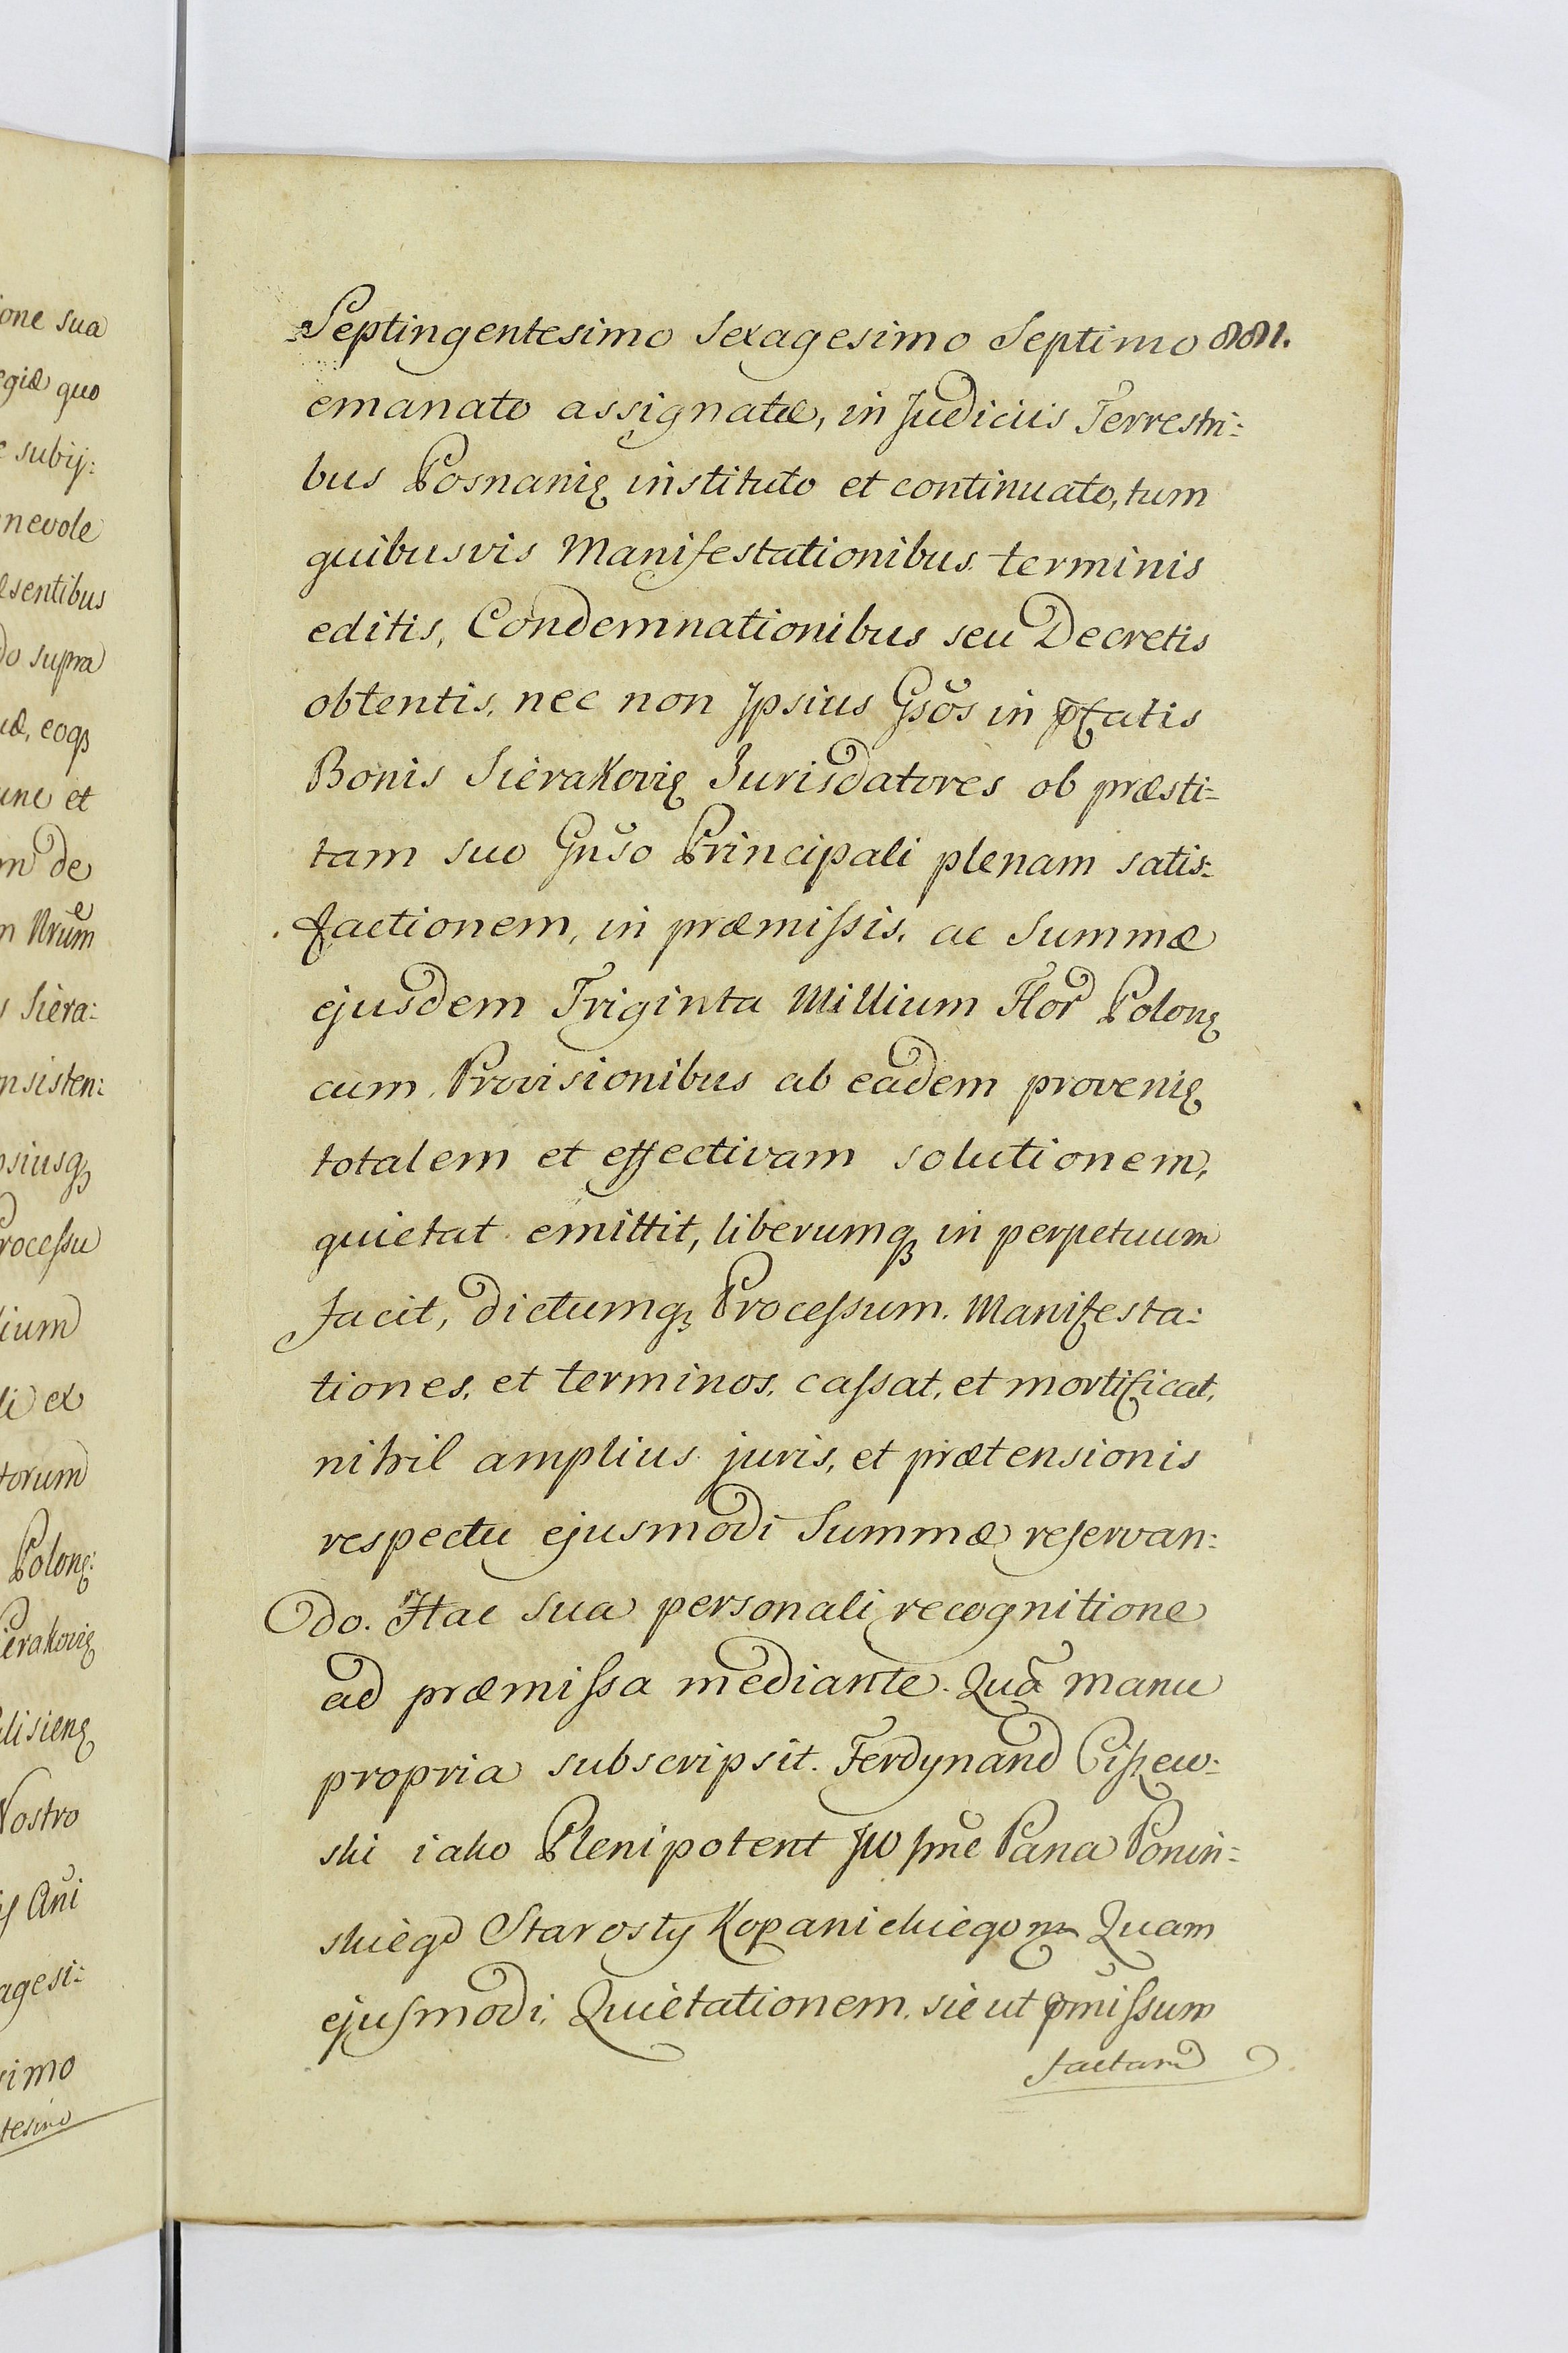 one sua
egiæ quo
subij:
nevole
esentibus
do supra
eoqȝ
une et
m de
Nrum
Siera:
nsisten:
psiusqȝ
rocessu
lium
li ex
torum
Polonę:
ierakovię
lisienę
Nostro
Ani
agesi:
simo
tesimo
Septingentesimo Sexagesimo Septimo 881.
emanato assignatæ, in Judiciis Terrestri:
bus Posnanię instituto et continuato, tum
quibusvis Manifestationibus terminis
editis, Condemnationibus seu Decretis
obtentis, nec non Ipsius Gsos in pfatis
Bonis Sierakovię Jurisdatores ob præsti:
tam suo Gnso Principali plenam satis:
factionem, in præmissis, ac Summæ
ejusdem Triginta Millium Flor Polonę
cum Provisionibus ab eadem provenię
totalem et effectivam solutionem,
quietat emittit, liberumqȝ in perpetuum
facit, dictumqȝ Processum. Manifesta:
tiones, et terminos, cassat, et mortificat,
nihil amplius juris, et prætensionis
respectu ejusmodi Summæ reservan:
do. Hac sua personali recognitione
ad præmissa mediante. Qua manu
propria subscripsit. Ferdynand Ciszew:
ski iako Plenipotent JW Jmc Pana Ponin:
skiego Starosty Kopanickiego mp Quam
ejusmodi, Quietationem, sic ut pmissum
factam